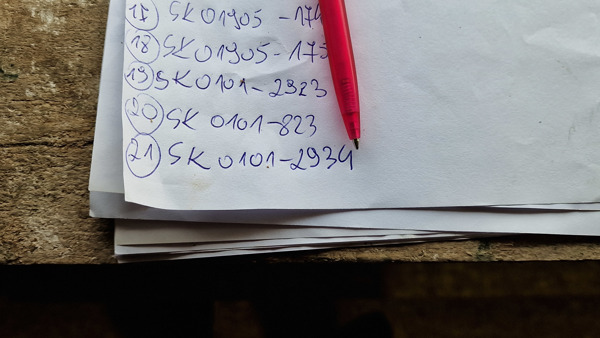 17 SK 01905-174
18 SK 01905-175
19 SK 0101-2923
20 SK 0101-823
21 SK 0101-2934